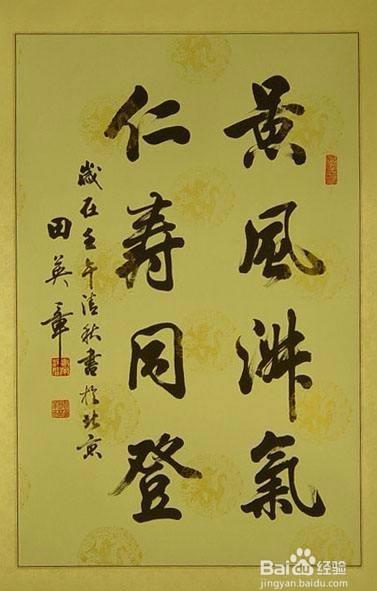 景風淑氣
仁壽同登
歲在壬午清秋書於北京
田英章
Baidu经验
jingyan.baidu.com